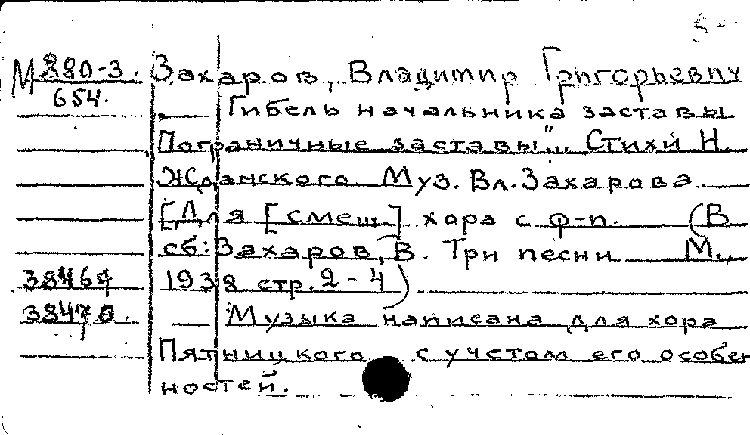 М 880-3. Захаров, Владимир Григорьевич
654.
Гибель начальника заставы
Пограничные заставы".. Стихи Н.
Жданского Муз. Вл. Захарова
[Для [смеш.] хора с ф-п. (В
сб: Захаров, В. Три песни М.,
38464 1938 стр. 2-4)
38470. — Музыка написана для хора
Пятницкого с учетом его особен
ностей.